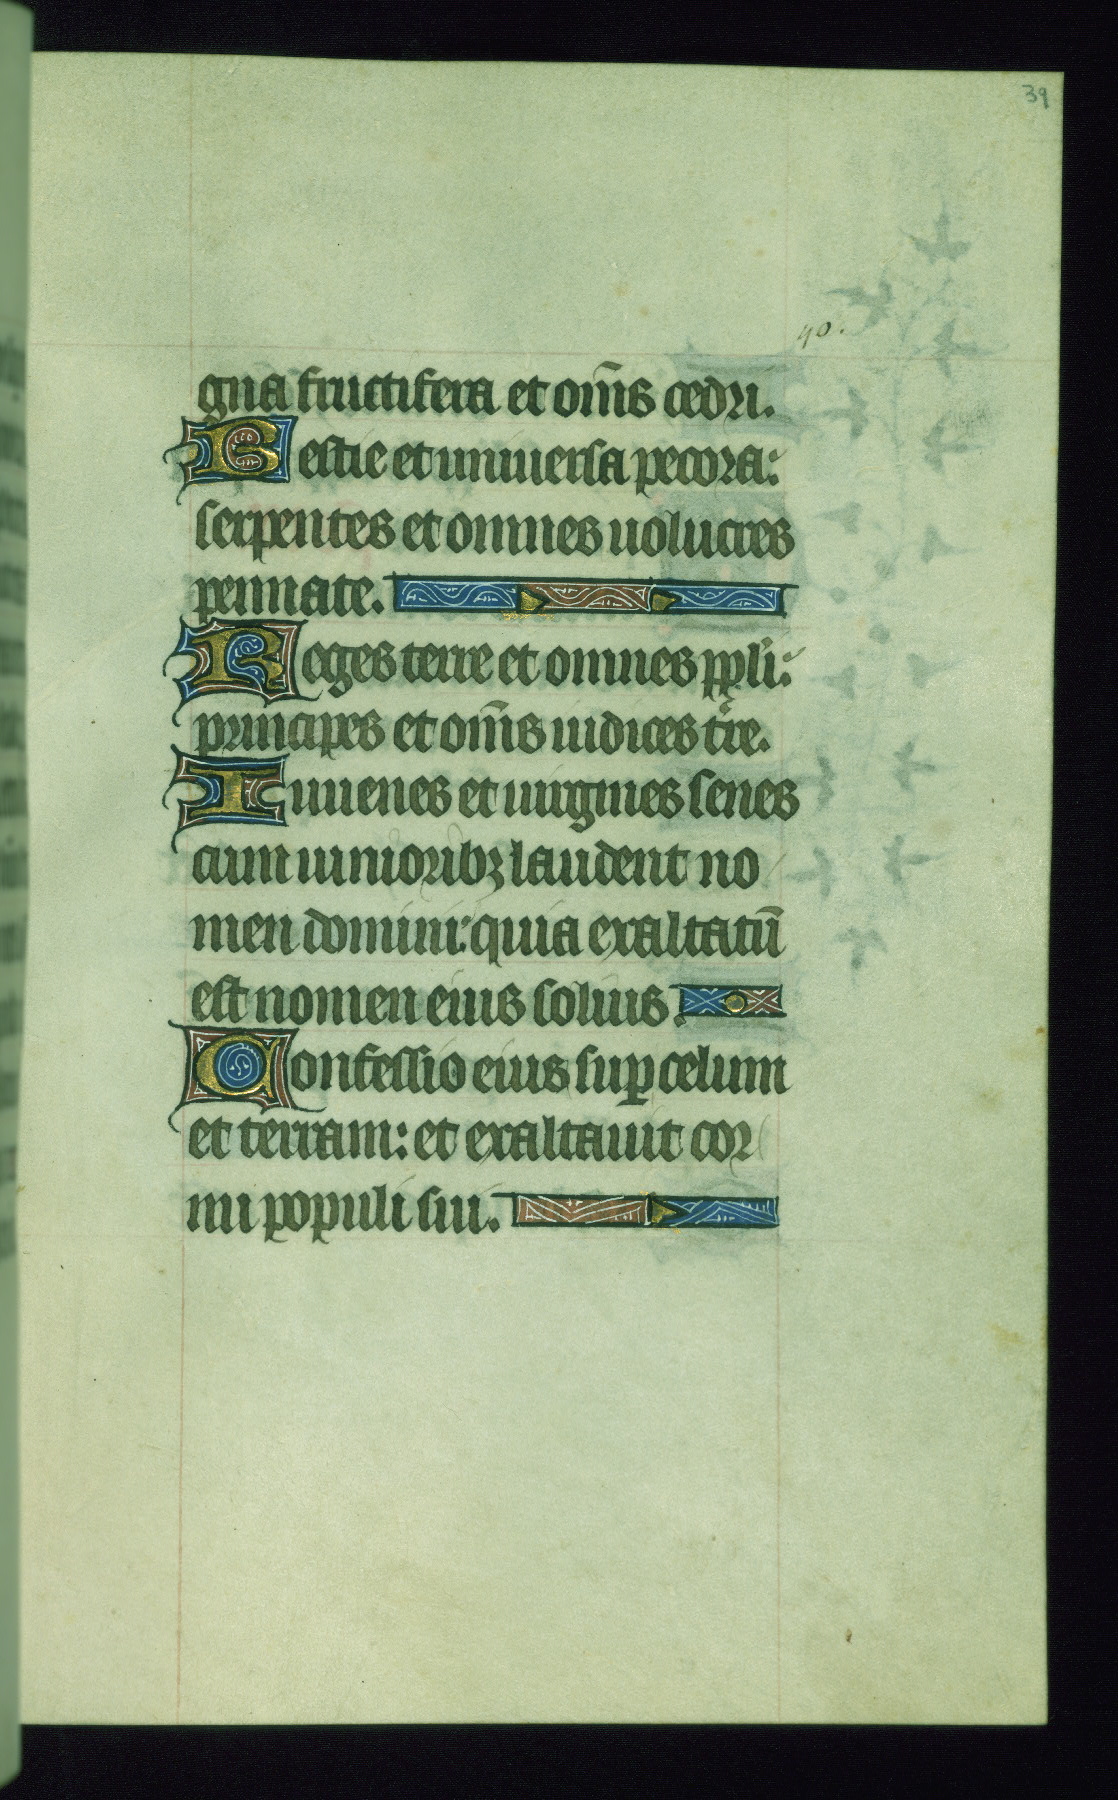 39
40.
gna fructifera et om̄s cedri.
Bestie et uniuersa pecora:
serpentes et omnes uolucres
pennate.
Reges terre et omnes ppl̓i:
principes et om̄s iudices tr̄e.
Iuuenes et uirgines senes
cum iunioribꝫ laudent no
men domini: quia exaltatū
est nomen eius solius.
Confessio eius suꝑ celum
et terram: et exaltauit cor
nu populi sui.